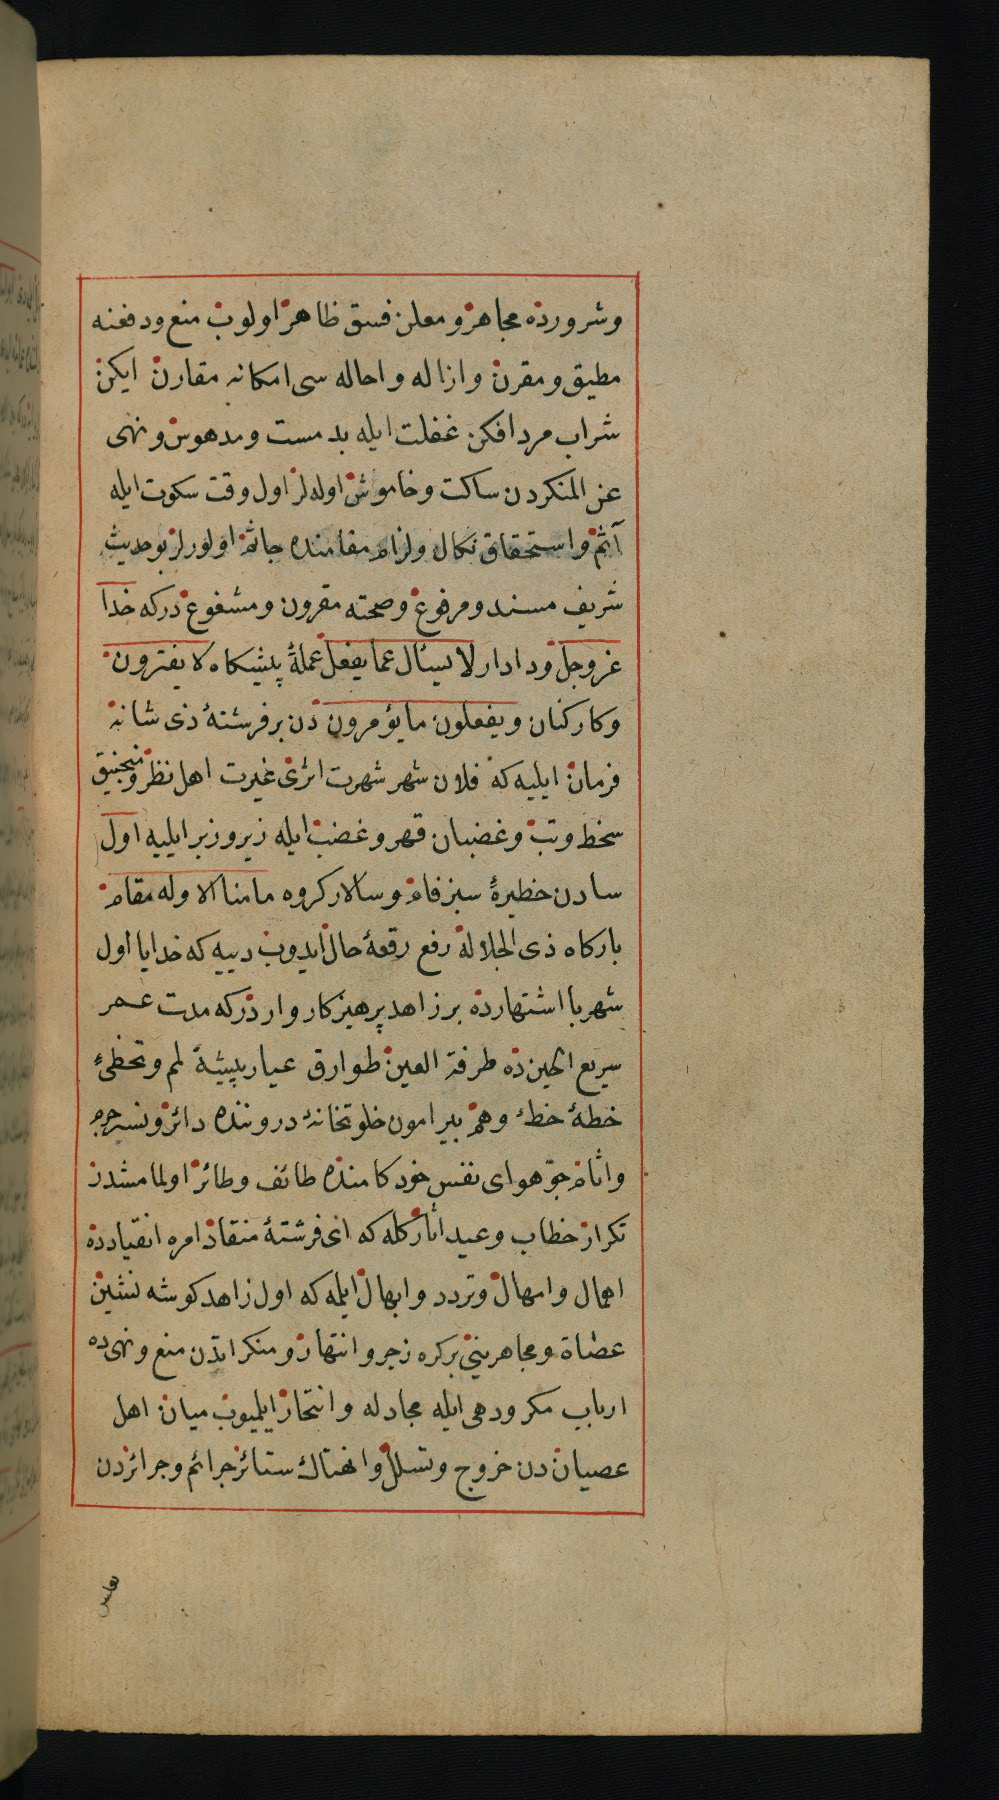 وشرورده مجاهر و معلن فسق ظاهر اولوب منع ودفعنه
مطيق و مقرن وازاله و احاله سى امكانه مقارن ايكن
شراب مردافكن غفلت ايله بدمست و مدهوش و نهى
عن المنكردن ساكت و خاموش اوله لر اول وقت سكوت ايله
آثم و استحقاق نكال ولزام مقامنده جاثم اولورلر بو حديث
شريف مسند و مرفوع و صحته مقرون و مشفوع دركه خدا
عز وجل و دادار لا يسئال عما يفعل عملهٔ پيشكاه لا يفترون
وكاركنان و يفعلون ما يؤمرون دن بر فرشتهٔ ذى شانه
فرمان ايليه كه فلان شهر شهرت اثرى غيرت اهل نظر و منجنيق
سخط وتب و غضبان قهر و غضب ايله زير و زبر ايليه اول
سادن خطيرهٔ سبزفام و سالار كروه مامنا الا وله مقام
باركاه ذى الجلاله رفع رقعهٔ حال ايدوب دييه كه خدايا اول
شهر با اشتهارده بر زاهد پرهيزكار واردركه مدت عمر
سريع الحين ده طرفة العين طوارق عيار پيشهٔ لم و تخطىٔ
خطهٔ خطـٔ وهم پيرامون خلوتخانهٔ دروننده دائر و نسر جرم
واثام جوّ هواى نفس خود كامنده طائف و طائر اولمامشدر
تكرار خطاب وعيد اثار كله كه اى فرشتهٔ منقاد امره انقيادده
اهمال وامهال و تردد وابهال ايلمه كه اول زاهد كوشه نشين
عصاة و مجاهرينى بر كره زجر و انتهار و منكراتدن منع و نهى ده
ارباب مكر و دهى ايله مجادله و انتحار ايلميوب ميان اهل
عصيان دن خروج وتسلل و انهتاك ستائر جرائم و جرائردن